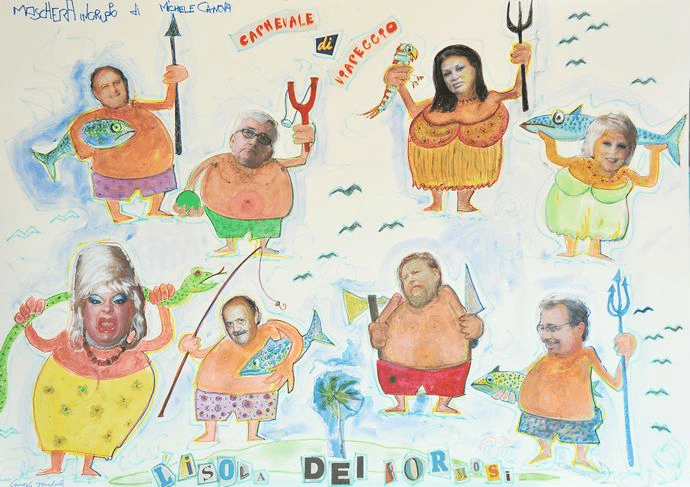 MASCHERA IN GRUPPO di MICHELE CANOVA
CARNEVALE
di
VIAREGGIO
L'ISOLA DEI FORMOSI